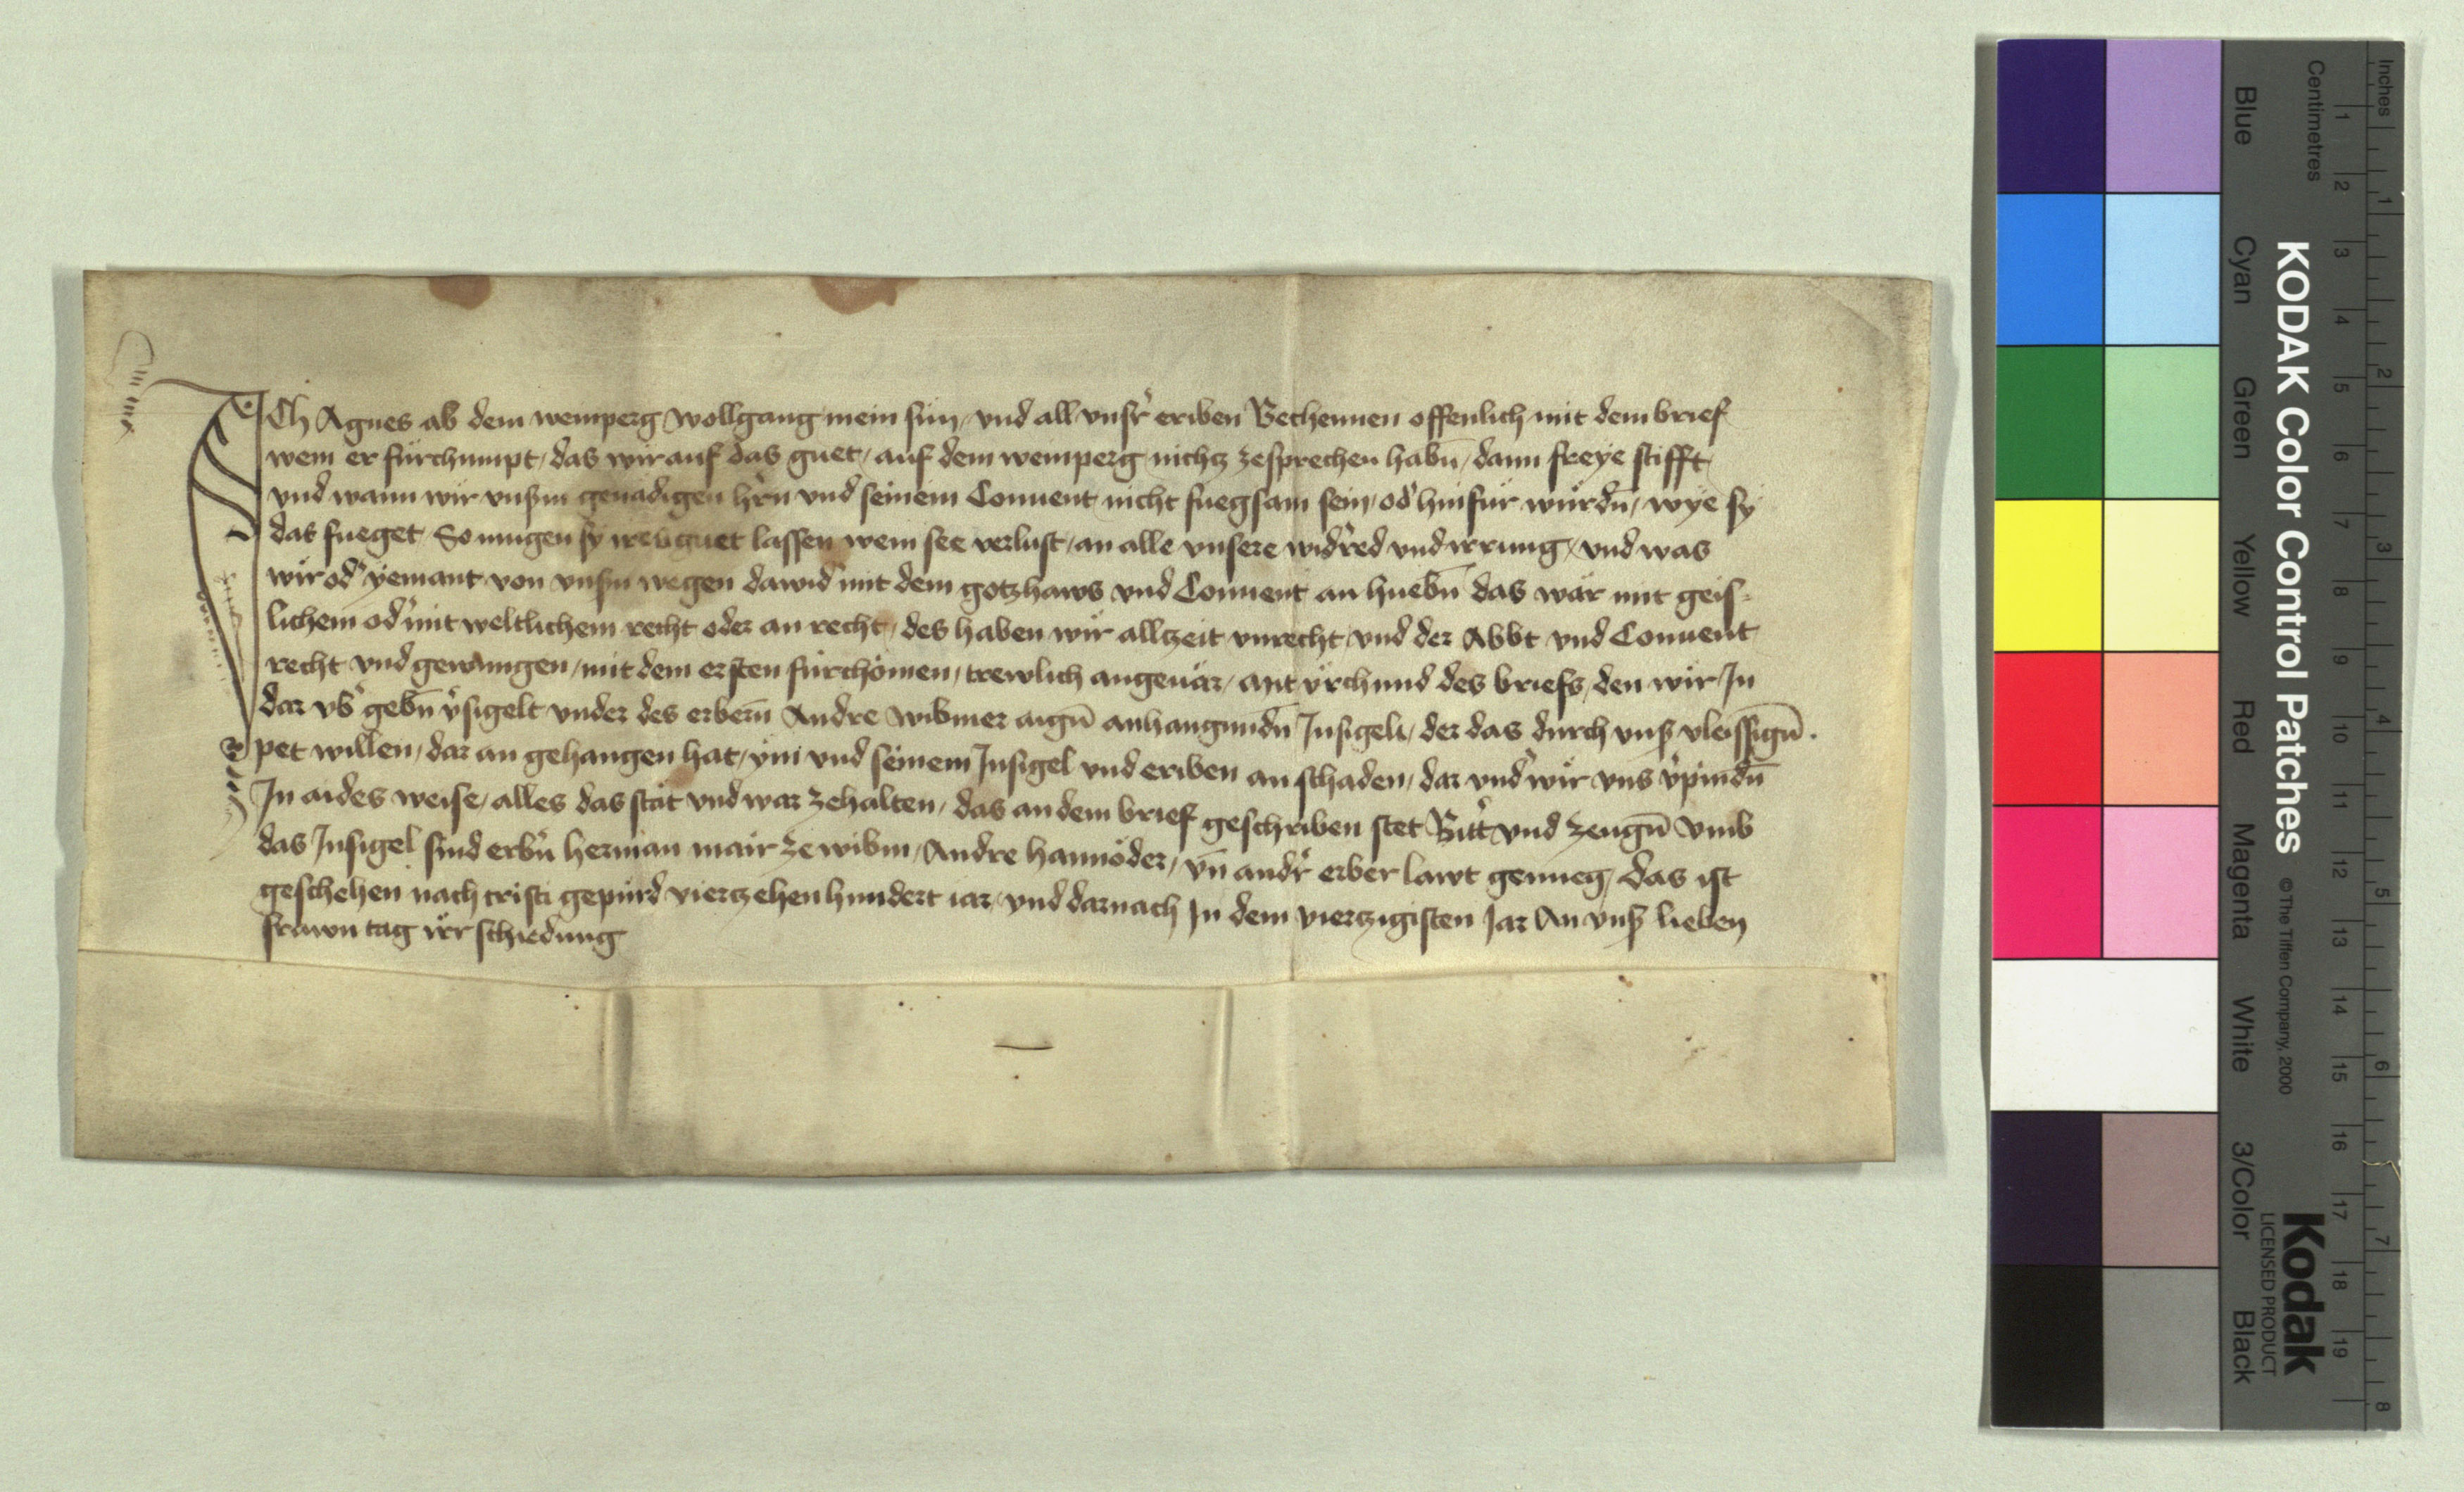 ICh Agnes ab dem weinperg wolfgang mein sun / vnd all vnsr̉ eriben Bechennen offenlich mit dem brief
wem er fürchumpt / das wir auf das guet / auf dem weinperg nichtz zesprechen habn̄ / dann freye stifft
vnd wann wir vnsm̄ genadigen hr̉n vnd seinem Conuent nicht fuegsam sein / od̉ hinfür würdn̄ / wye sy
das fueget So mugen sy ir guet lassen wem see verlust / an alle vnsere widr̉red vnd irrung / vnd was
wir od̉ yemant von vnsm̄ wegen dawid̉ mit dem gotzhaws vnd Conuent an huebn̄ das wär mit geis-
lichem od̉ mit weltlichem recht oder an recht / des haben wir allzeit vnrecht / vnd der Abbt vnd Conuent
recht vnd gewungen / mit dem ersten fürchömen / trewlich angeuär / mit vrchund des briefs / den wir In
dar vb̉ gebn̄ v̉sigelt vnder des erbern̄ Andre wibmer aign̄ anhangundn̄ Insigeli / der das durch vnsß vleissign̄ .
pet willen / dar an gehangen hat / ym vnd seinem Insigel vnd eriben an schaden / dar vnd̉ wir vns v̉pindn̄
In aides weise / alles das stät vnd war zehalten / das an dem brief geschriben stet Bitt̉ vnd zeugn̄ vmb
das Insigel sind erbn̉ herman mair ze wibm / Andre hannöder / vn̄ andr̉ erber lawt genueg / Das ist
geschehen nach cristi gepürd viertzehenhundert iar / vnd darnach In dem viertzigisten Jar An vnsß lieben
frawn tag ir̉r schiedung
KODAK Color Control Patches © The Tiffen Company, 2000
Kodak
LICENSED PRODUCT
Blue Cyan Green Yellow Red Magenta White 3/Color Black
Centimetres 1 2 3 4 5 6 7 8 9 10 11 12 13 14 15 16 17 18 19
Inches 1 2 3 4 5 6 7 8